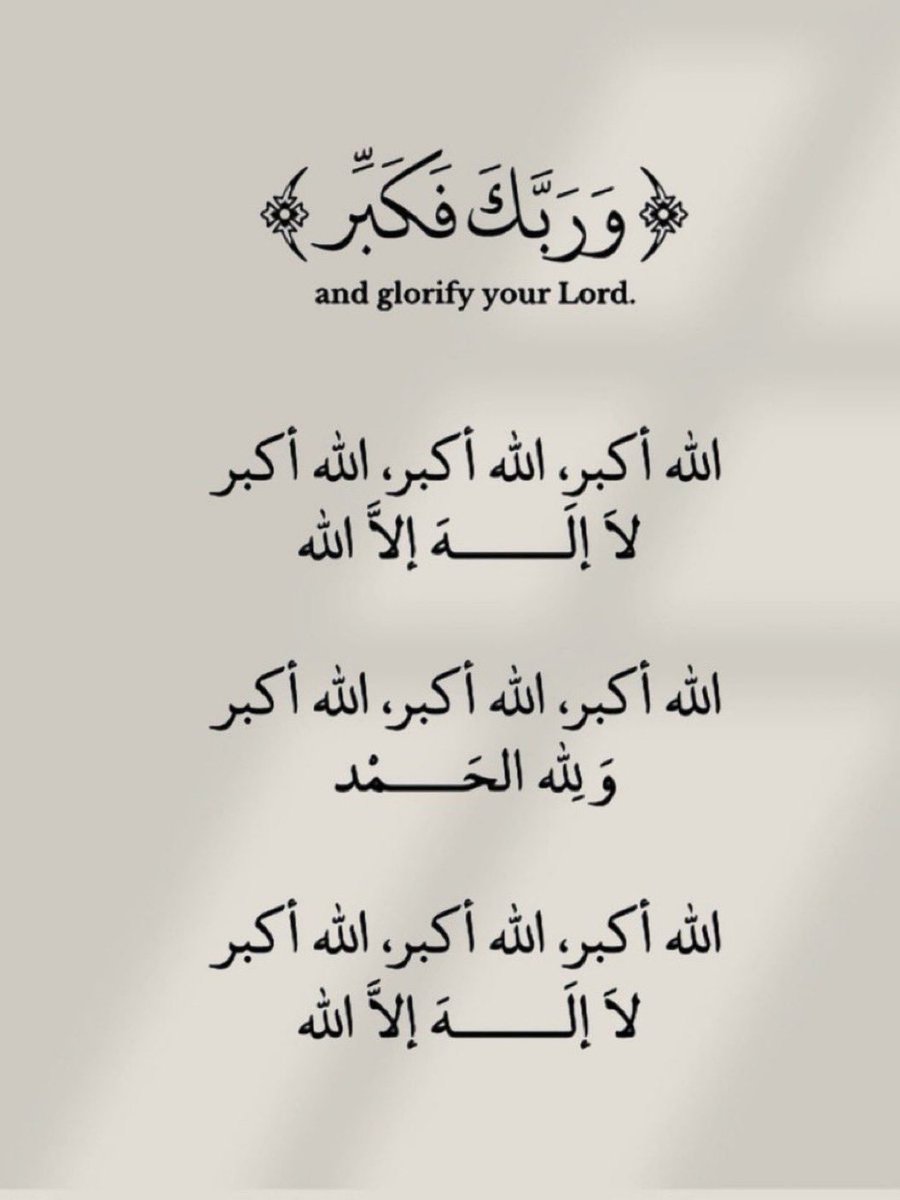 ﴿وَرَبَّكَ فَكَبِّر﴾
and glorify your Lord.
الله أكبر، الله أكبر، الله أكبر
لاَ إلَـــــهَ إلاَّ الله
الله أكبر، الله أكبر، الله أكبر
وَ لِله الحَـــــمْد
الله أكبر، الله أكبر، الله أكبر
لاَ إلَـــــهَ إلاَّ الله